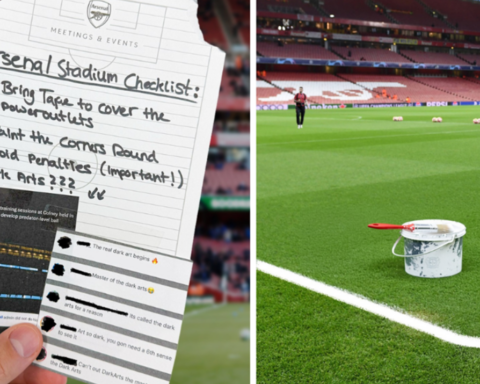 Arsenal
MEETINGS & EVENTS
rsenal Stadium Checklist:
Bring Tape to cover the
poweroutlets
aint the corners Round
old Penalties (important!)
k Arts ???
training sessions at Colney held in
develop predator-level ball
The real dark art begins 🔥
Master of the dark arts😂
Its called the dark
arts for a reason
Art so dark, you gon need a 6th sense
to see it
Can't out DarkArts the
the Dark Arts